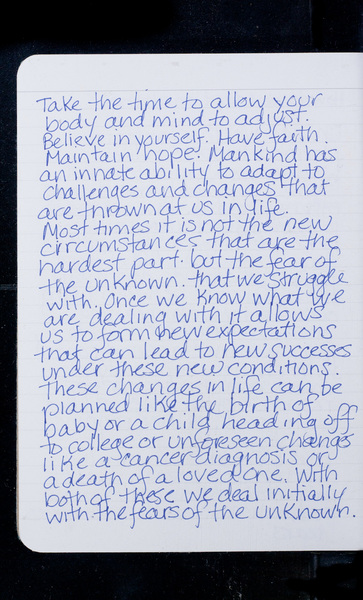 Take the time to allow your
body and mind to adjust.
Believe in yourself. Have faith.
Maintain hope. Mankind has
an innate ability to adapt to
challenges and changes that
are thrown at us in life.
Most times it is not the new
circumstances that are the
hardest part. but the fear of
the unknown. that we struggle
with. Once we know what we
are dealing with it allows
us to form new expectations
that can lead to new successes
under these new conditions.
These changes in life can be
planned like the birth of
baby or a child heading off
to college or unforeseen changes
like a cancer diagnosis or
a death of a loved one. With
both of these we deal initially
with the fears of the unknown.